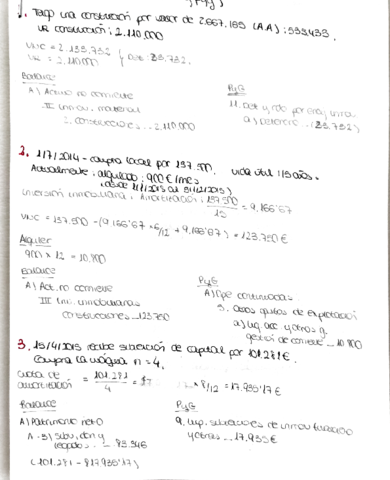 1. Tengo una construcción por valor de 2.667.165 (A.A): 533.433.
VR construcción: 2.110.000
VNC = 2.133.732
VR = 2.110.000 } Det: 23.732.
Balance
PyG
A) Activo no corriente
II Inmov. material
2. construcciones... 2.110.000
11. Det y rdo por enaj inmov
a) Deterioro. (23.732)
2. 1/7/2014 - compra local por 137.500. Vida útil: 15 años.
Actualmente: alquilado: 900 €/mes
(desde 1/1/2015 al 31/12/2015)
Inversión inmobiliaria, Amortización: 137.500 / 15 = 9.166'67
VNC = 137.500 - (9.166'67 × 6/12 + 9.166'67) = 123.750 €
Alquiler
900 × 12 = 10.800
Balance
A) Act. no corriente
III Inv. inmobiliarias
Construcciones - 123.750
PyG
A) Ope continuadas
5. otros gastos de explotación
a) Ing. acc y otros g.
gestión de corriente - 10.800
3. 15/4/2015 recibe subvención de capital por 101.281 €.
Compra la máquina n = 4.
cuota de amortización = 101.281 / 4
× 8/12 = 17.935'17 €
Balance
A) Patrimonio neto
A-3) Subv, don y legados... - 83.346
(101.281 - 17.935'17)
PyG
9. Imp. subvenciones de inmov financiero
y otras... 17.935 €